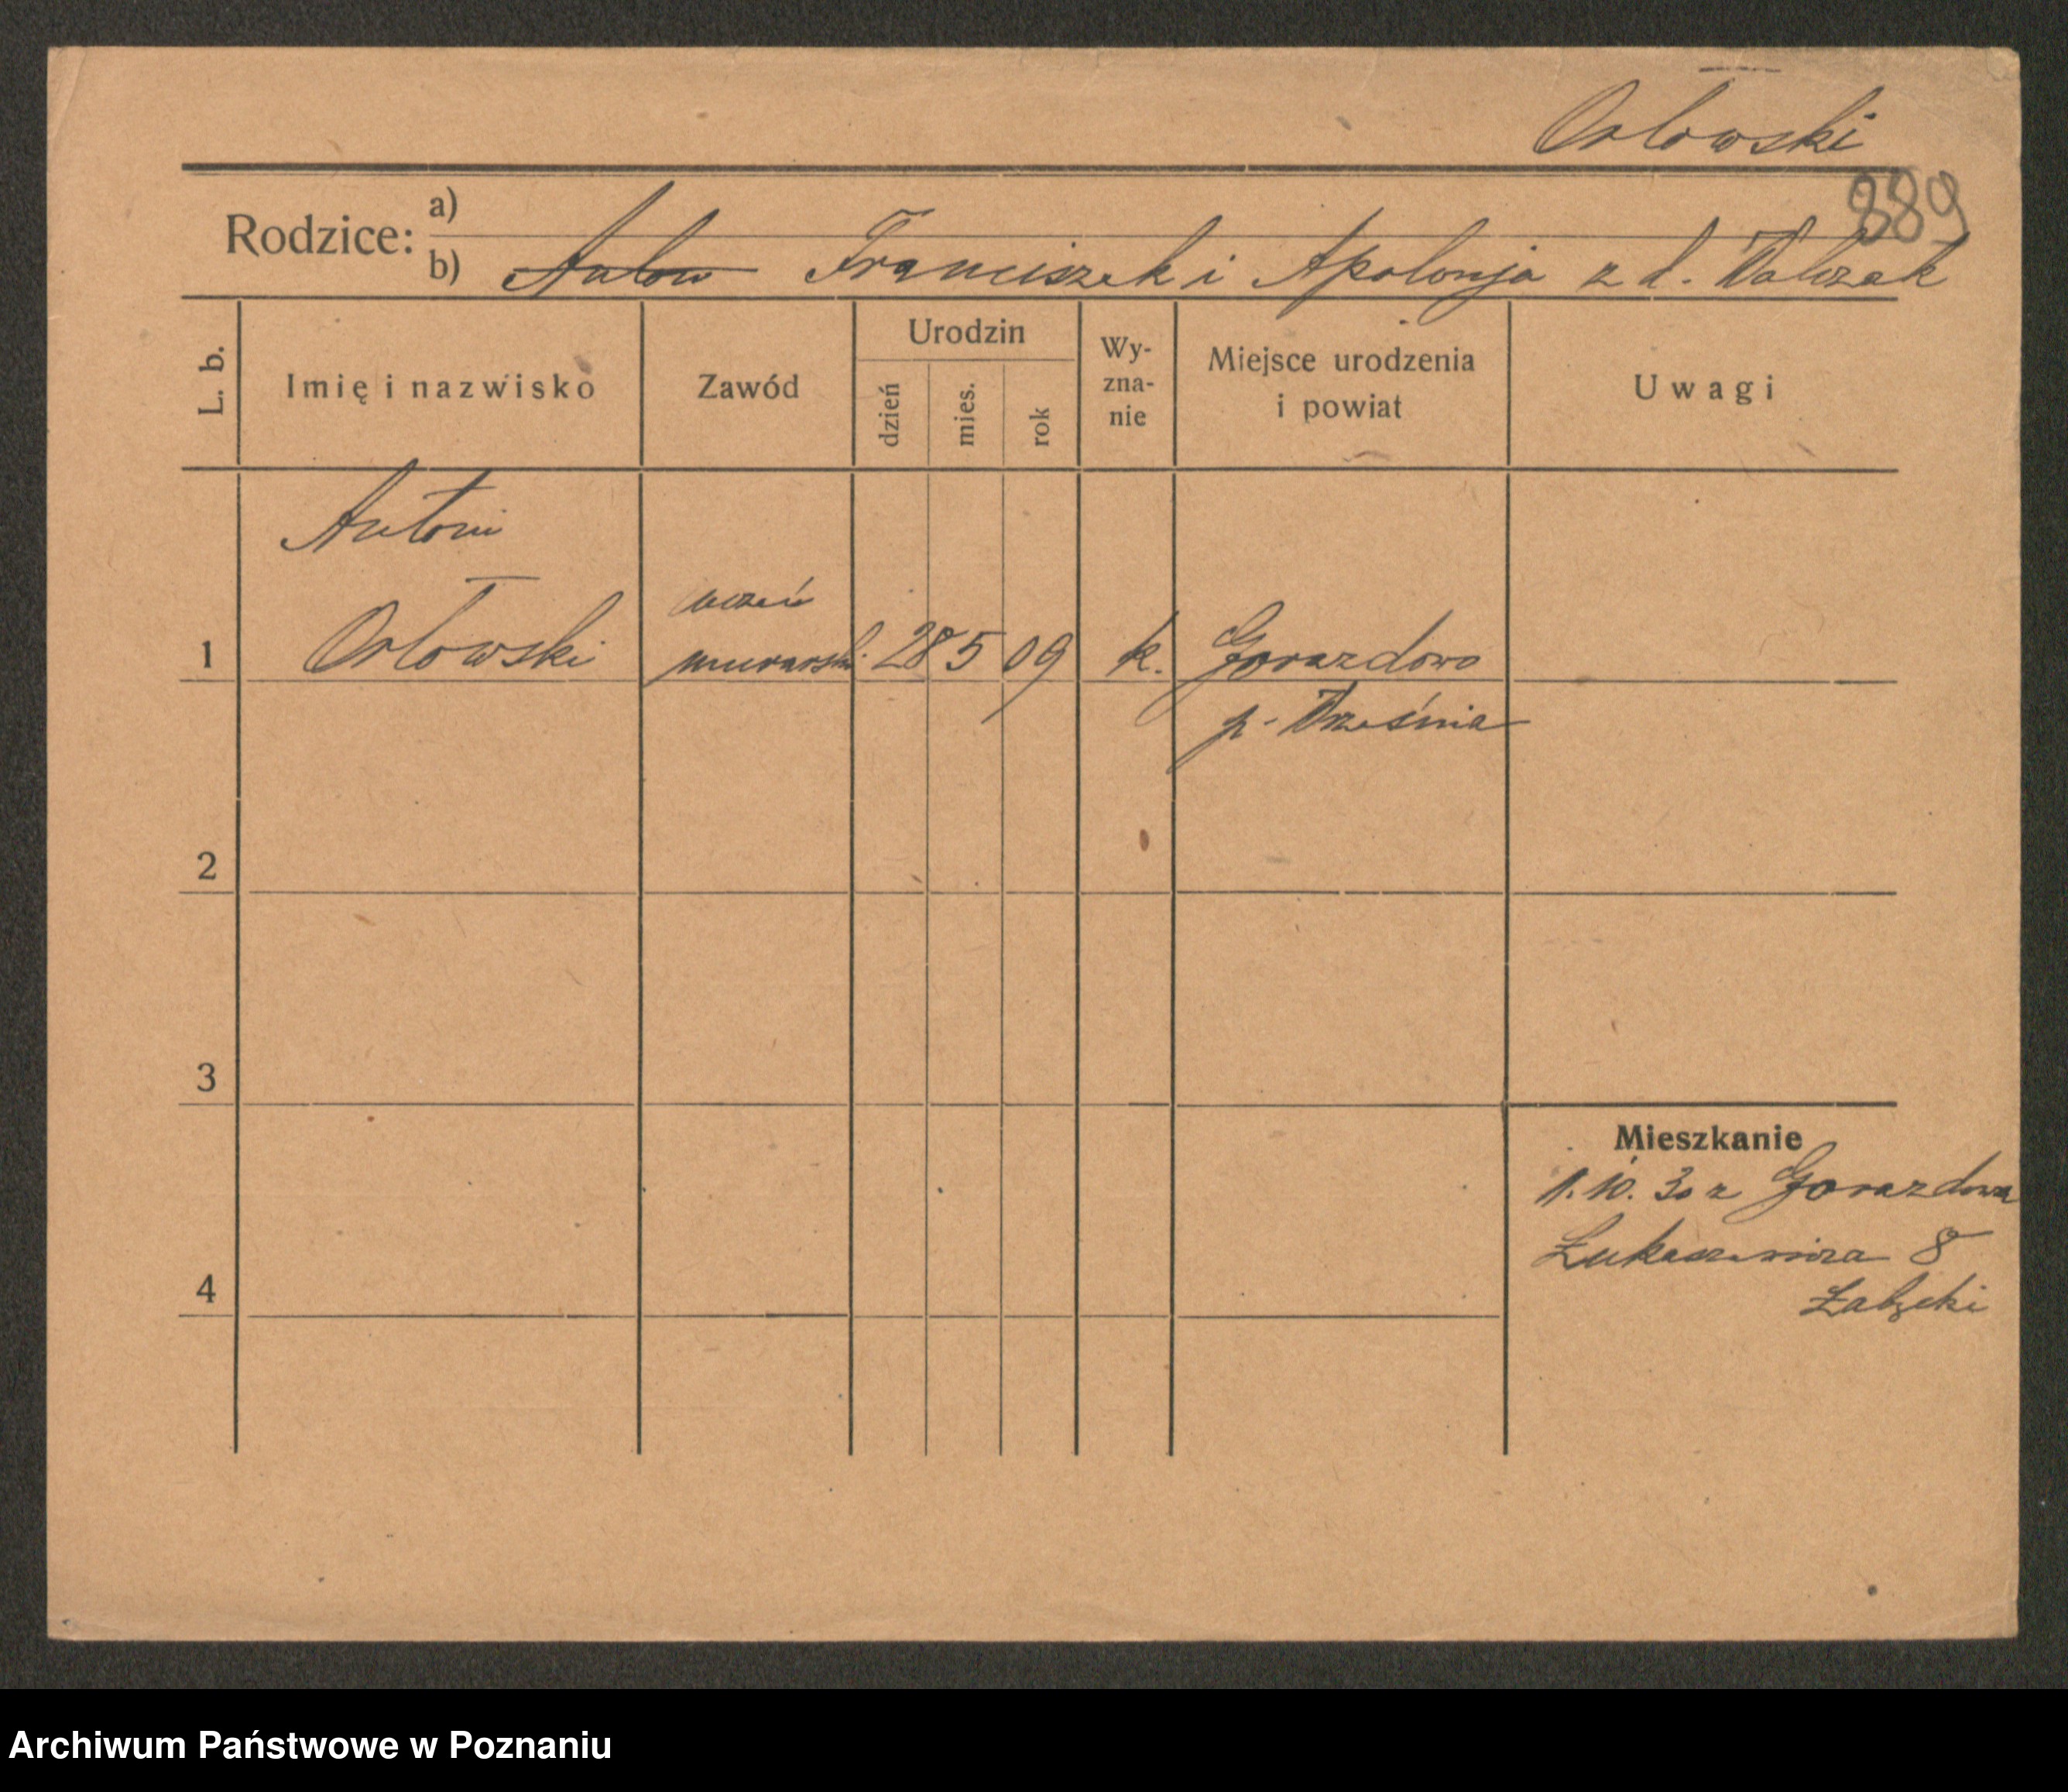 Orłowski
889
Rodzice:
a)
b) Anton Franciszek i Apolonja z d. Walczak
L. b.
Imię i nazwisko
Zawód
Urodzin
dzień
mies.
rok
Wy-
zna-
nie
Miejsce urodzenia
i powiat
Uwagi
Antoni
uczeń
1 Orłowski murarski 28 5 09 k. Gorazdowo
p. Września
2
3
Mieszkanie
1.10.30 z Gorazdowa
Łukaszewicza 8
4
Archiwum Państwowe w Poznaniu